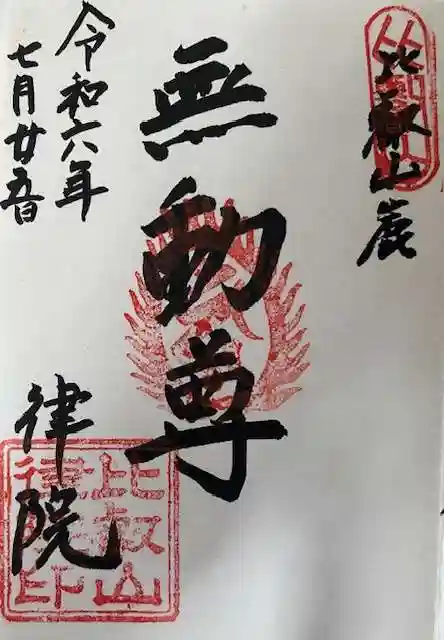 比叡山麓
無動尊
令和六年
七月廿五日
律院
比叡山
律院印